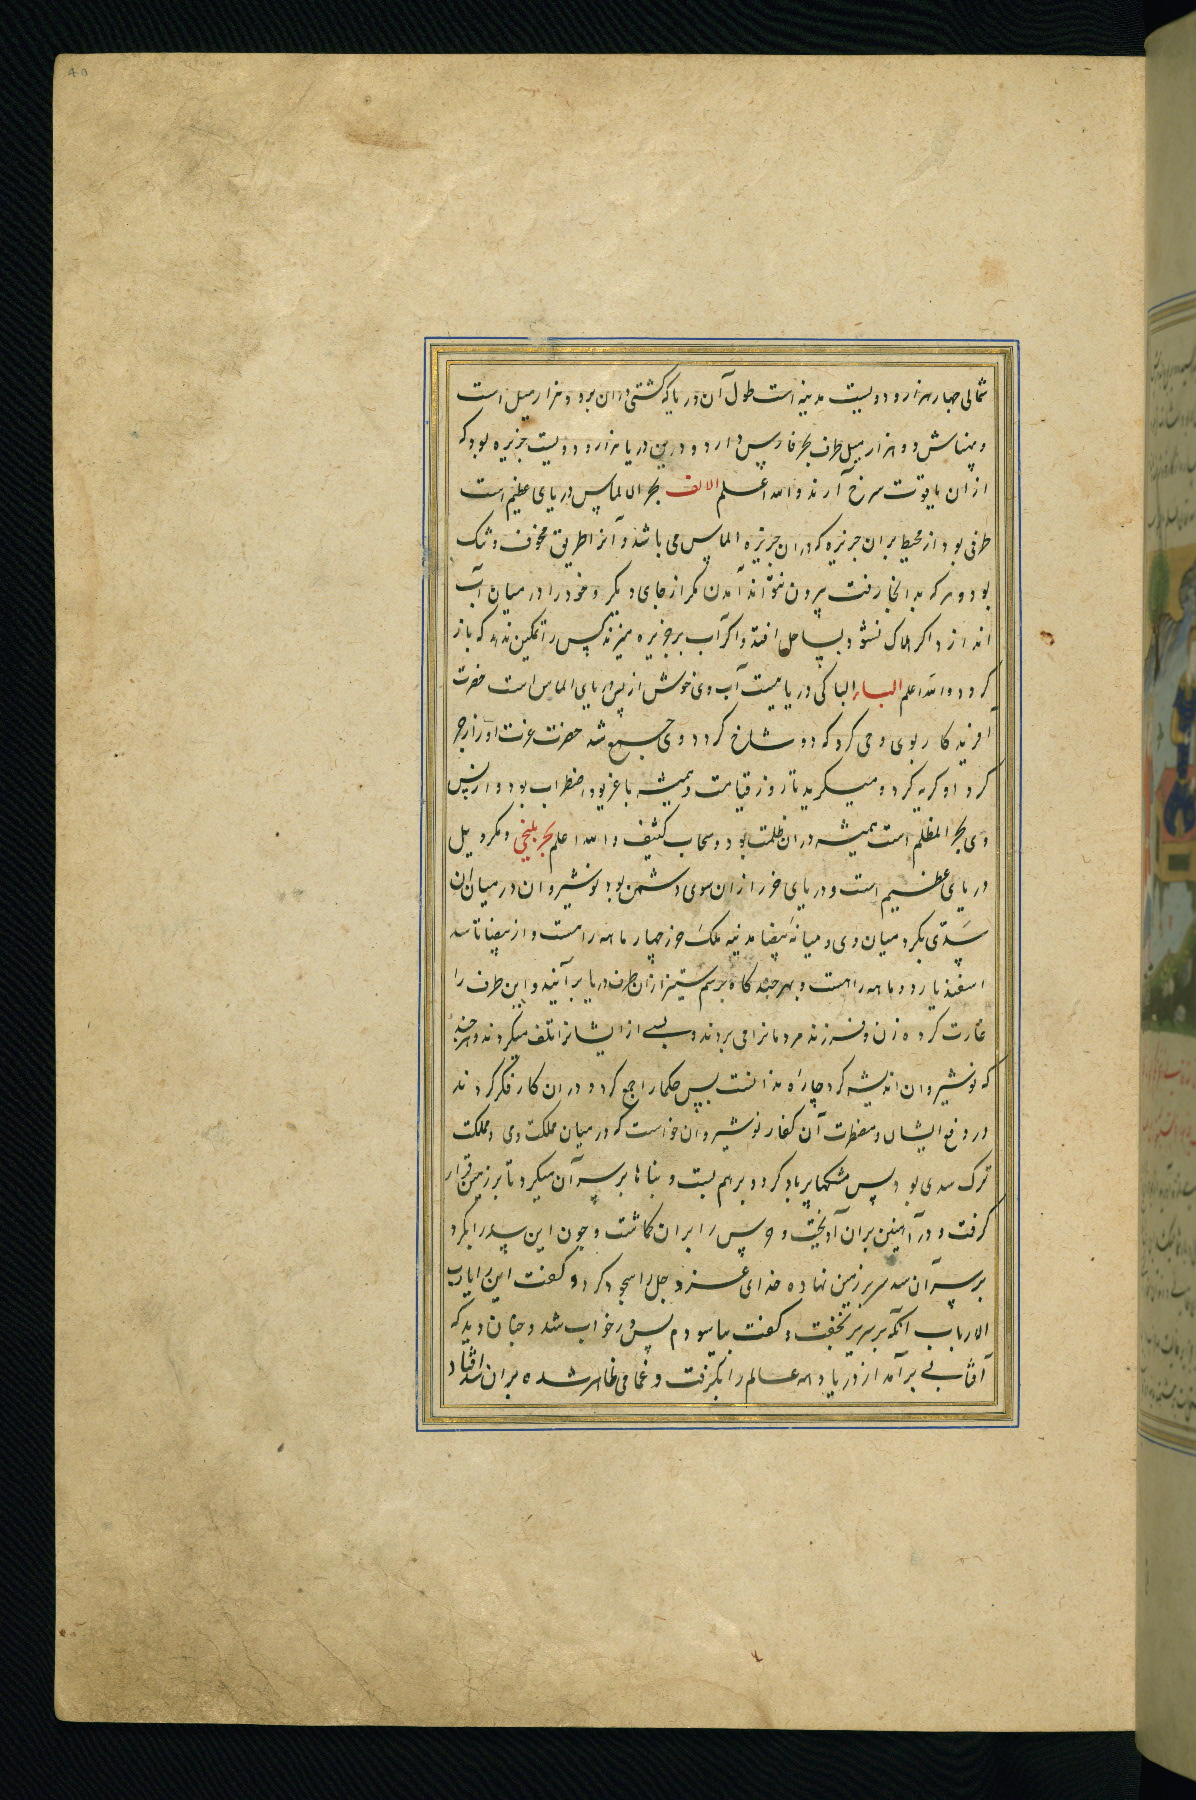 شمالی چهار هزار و دویست مدینه است طول آن دریا که کشتی دران برود هزار میل است
و پهناش دو هزار میل طرف بحر فارس دارد و درین دریا هزار و دویست جزیره بود که
ازان یاقوت سرخ آرند والله اعلم الالف بحر الالماس دریای عظیم است
طرفی بود از محیط بران جزیره که دران جزیره الماس می باشد و آنرا طریق مخوف و تنک
بود و هر که بدانجا رفت بیرون نتواند آمدن مکر از جای دیکر و خود را در میان آب
اندازد اکر هلاک نشود بساحل افتد و اکر آب بر جزیره میزند کس را تمکین ندهد که باز
کردد والله اعلم الباء الباکی دریاییست آب وی خوش از پس دریای الماس است حضرت
آفریدکار بوی وحی کرد که دو شاخ کردد وی جمع شد حضرت عزت او را زجر
کرد او کریه کرد و میکرید تا روز قیامت و همیشه با غریو و اضطراب بود و از پس
وی بحر المظلم است همیشه دران ظلمت بود و سحاب کثیف والله اعلم بحر بلنجر و مکرو بیل
دریای عظیم است و دریای خزر ازان سوی دشمن بود نوشیروان در میان آن
سدّی بکرد میان وی و میانه بیضا مدینه ملک خزر چهار ماهه راهست و از بیضا تا سد
اسفندیار دو ماهه راهست و بهر چند کاه برسم ستیز ازان طرف دریا برآیند و این طرف را
غارت کرده زن و فرزند مردمانرا می بردند و بسی از ایشانرا تلف میکردند و هر چند
که نوشیروان اندیشه کرد چاره ندانست پس حکما را جمع کرد و دران کار فکر کردند
در دفع ایشان و مضرت آن کفار نوشیروان خواست که در میان مملکت وی و مملکت
ترک سدی بود پس مشکها پر باد کرد و برهم بست و بناها بر سر آن میکرد تا بر زمین قرار
کرفت و در آهنین بران آویخت و حرس را بران کماشت و چون این سد را بکرد
بر سر آن سد سر بر زمین نهاده خدای عز و جل را سجود کرد و کفت این را یا رب
الارباب آنکه بر سریر بخفت و کفت بیاسودم پس در خواب شد و چنان دید که
آفتابی برآمد از دریا و همه عالم را بکرفت و غمامی ظاهر شده بران سد افتاد